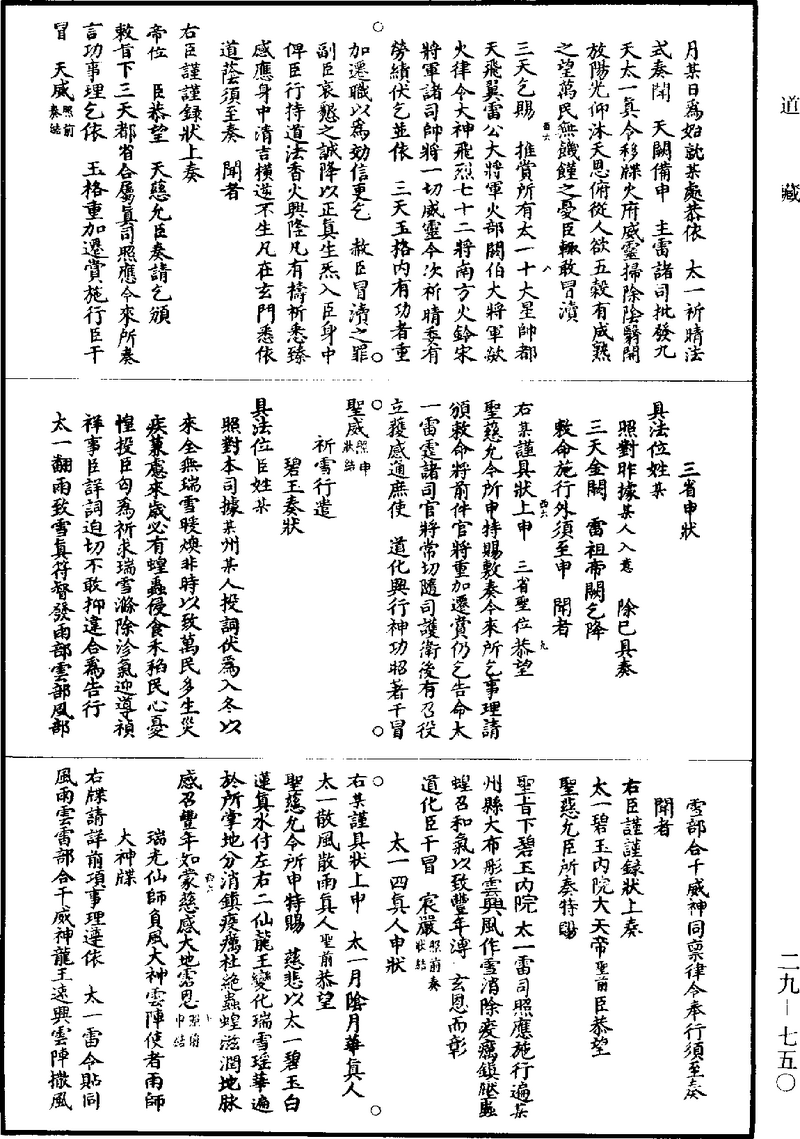 道藏
月某日為始就某處恭依　太一祈晴法
式奏聞　天闕備申　主雷諸司批發九
天太一真令移牒火府威靈掃除陰翳開
放陽光仰沐天恩俯從人欲五穀有成熟
之望萬民無饑饉之憂臣輒敢冒瀆
三天乞賜　推賞所有太一十大星帥都
天飛翼雷公大將軍火部閼伯大將軍歘
火律令大神飛烈七十二將南方火鈴宋
將軍諸司帥將一切威靈今次祈晴委有
勞績伏乞並依　三天玉格內有功者重
加遷職以為効信更乞　赦臣冒瀆之罪
副臣哀懇之誠降以正真生炁入臣身中
俾臣行持道法香火興隆凡有禱祈悉臻
感應身中清吉橫逆不生凡在玄門悉依
道蔭須至奏　聞者
右臣謹謹錄狀上奏
帝位　臣恭望　天慈允臣奏請乞頒
敕旨下三天都省合屬真司照應今來所奏
言功事理乞依　玉格重加遷賞施行臣干
冒　天威照前奏結
三省申狀
具法位姓某
照對昨據某人入意　除已具奏
三天金闕　雷祖帝闕乞降
敕命施行外須至申　聞者
右某謹具狀上申　三省聖位恭望
聖慈允令所申特賜敷奏今來所乞事理請
頒敕命將前件官將重加遷賞仍乞告命太
一雷霆諸司官將常切隨司護衛後有召役
立獲感通庶使　道化興行神功昭著干冒
聖威照申狀結
祈雪行遣
碧玉奏狀
具法位臣姓某
照對本司據某州某人投詞伏為入冬以
來全無瑞雪暖燠非時以致萬民多生災
疾蒹慮來歲必有蝗蟲侵食禾稻民心憂
惶投臣匄為祈求瑞雪滌除沴氣迎導禎
祥事臣詳詞迫切不敢抑違合為告行
太一翻雨致雪真符督發雨部雲部風部
雪部合干威神同稟律令奉行須至奏
聞者
右臣謹謹錄狀上奏
太一碧玉內院大天帝聖前臣恭望
聖慈允臣所奏特賜
聖旨下碧玉內院太一雷司照應施行遍某
州縣大布彤雲興風作雪消除疫癘鎮壓蟲
蝗召和氣以致豐年溥　玄恩而彰
道化臣干冒　宸嚴照前奏狀結
太一四真人申狀
右某謹具狀上申　太一月陰月華真人
太一散風散雨真人聖前恭望
聖慈允令所申特賜　慈悲以太一碧玉白
蓮真水付左右二仙龍王變化瑞雪瑶華遍
於所掌地分消鎮疫癘杜絕蟲蝗滋潤地脉
感召豐年如蒙慈感大地霑恩照前申結
瑞光仙師負風大神雲陣使者雨師
大神牒
右牒請詳前項事理遵依　太一雷令貼同
風雨雲雷部合干威神龍王遠興雲陣撒風
二九—七五〇